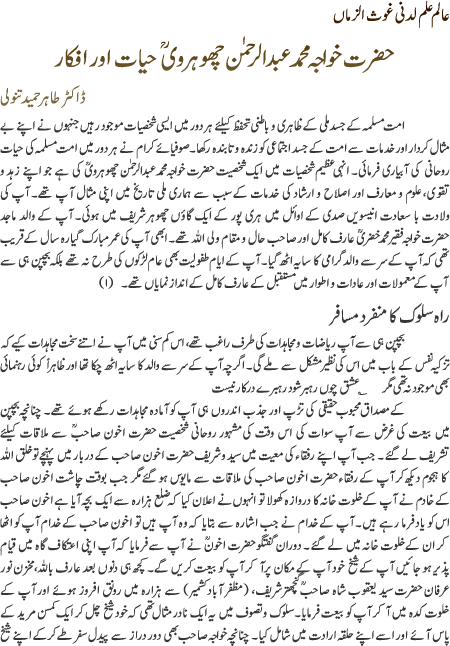 عالم علم لدنی غوث الزماں
حضرت خواجہ محمد عبدالرحمٰن چھوہرویؒ حیات اور افکار
ڈاکٹر طاہر حمید تنولی
امت مسلمہ کے جسد ملی کے ظاہری و باطنی تحفظ کیلئے ہر دور میں ایسی شخصیات موجود رہیں جنہوں نے اپنے بے
مثال کردار اور خدمات سے امت کے جسد اجتماعی کو زندہ و تابندہ رکھا۔ صوفیائے کرام نے ہر دور میں امت مسلمہ کی حیات
روحانی کی آبیاری فرمائی۔ انہی عظیم شخصیات میں ایک شخصیت حضرت خواجہ محمد عبدالرحمٰن چھوہرویؒ کی ہے جو اپنے زہد و
تقویٰ، علوم و معارف اور اصلاح و ارشاد کی خدمات کے سبب سے ہماری ملی تاریخ میں اپنی مثال آپ تھے۔ آپ کی
ولادت با سعادت انیسویں صدی کے اوائل میں ہری پور کے ایک گاؤں چھوہر شریف میں ہوئی۔ آپ کے والد ماجد
حضرت خواجہ فقیر محمد خضریؒ عارف کامل اور صاحب حال و مقام ولی اللہ تھے۔ ابھی آپ کی عمر مبارک گیارہ سال کے قریب
تھی کہ آپ کے سر سے والد گرامی کا سایہ اٹھ گیا۔ آپ کے ایام طفولیت بھی عام لڑکوں کی طرح نہ تھے بلکہ بچپن ہی سے
آپ کے معمولات اور عادات و اطوار میں مستقبل کے عارف کامل کے انداز نمایاں تھے۔ (۱)
راہ سلوک کا منفرد مسافر
بچپن ہی سے آپ ریاضات و مجاہدات کی طرف راغب تھے، اس کم سنی میں آپ نے اتنے سخت مجاہدات کیے کہ
تزکیہ نفس کے باب میں اس کی نظیر مشکل سے ملے گی۔ اگرچہ آپ کے سر سے والد کا سایہ اٹھ چکا تھا اور ظاہراً کوئی رہنمائی
بھی موجود نہ تھی مگر عشق چوں رہبر شود رہبرے درکار نیست
کے مصداق محبوب حقیقی کی تڑپ اور جذب اندروں ہی آپ کو آمادہ مجاہدات رکھے ہوئے تھے۔ چنانچہ بچپن
میں بیعت کی غرض سے آپ سوات کی اس وقت کی مشہور روحانی شخصیت حضرت اخون صاحبؒ سے ملاقات کیلئے
تشریف لے گئے۔ جب آپ اپنے رفقاء کی معیت میں سیدو شریف حضرت اخون صاحب کے دربار میں پہنچے تو خلق اللہ
کا ہجوم دیکھ کر آپ کے رفقاء حضرت اخون صاحب کی ملاقات سے مایوس ہو گئے مگر جب بوقت چاشت اخون صاحب
کے خادم نے آپ کے خلوت خانہ کا دروازہ کھولا تو انہوں نے اعلان کیا کہ ضلع ہزارہ سے ایک بچہ آیا ہے اخون صاحب
اس کو یاد فرما رہے ہیں۔ آپ کے خدام نے جب اشارہ سے بتایا کہ وہ آپ ہیں تو اخون صاحب کے خادم آپ کو اٹھا
کر ان کے خلوت خانہ میں لے گئے۔ دوران گفتگو حضرت اخونؒ نے آپ سے فرمایا کہ آپ اپنی اعتکاف گاہ میں قیام
پذیر ہو جائیں آپ کے شیخ خود آپ کے مکان پر آ کر آپ کو بیعت کریں گے۔ کچھ ہی دنوں بعد عارف باللہ، مخزن نور
عرفان حضرت سید یعقوب شاہ صاحبؒ گنچھتر شریف، (مظفر آباد کشمیر) سے ہزارہ میں رونق افروز ہوئے اور آپ کے
خلوت کدہ میں آ کر آپ کو بیعت فرمایا۔ سلوک و تصوف میں یہ ایک نادر مثال تھی کہ خود شیخ چل کر ایک کمسن مرید کے
پاس آئے اور اسے اپنے حلقہ ارادت میں شامل کیا۔ چنانچہ خواجہ صاحب بھی دور دراز سے پیدل سفر طے کر کے اپنے شیخ